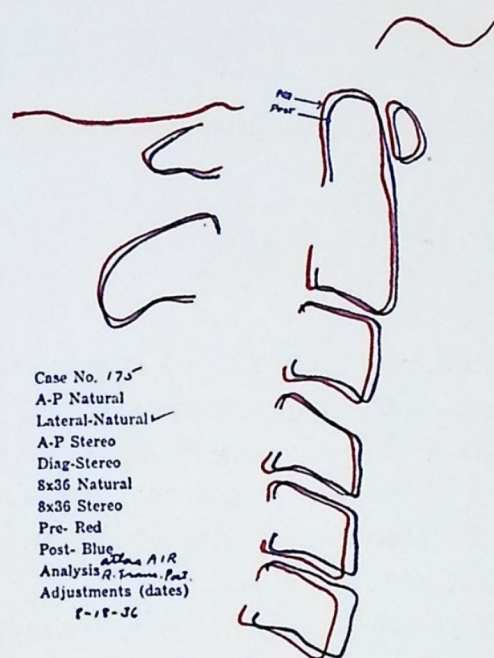 Pre
Post
Case No. 175
A-P Natural
Lateral-Natural ✓
A-P Stereo
Diag-Stereo
8x36 Natural
8x36 Stereo
Pre- Red
Post- Blue
Analysis atlas AIR
R. Trans. Post.
Adjustments (dates)
8-18-36